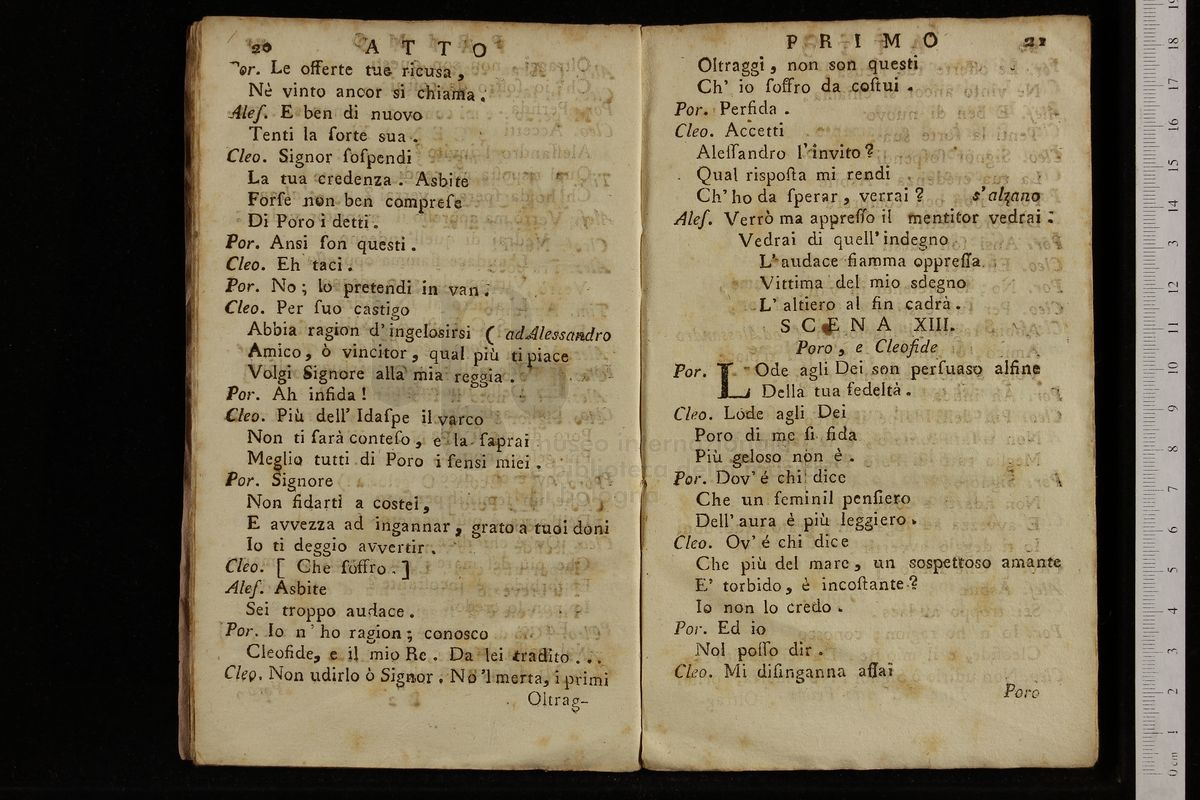 20 ATTO
Por. Le offerte tue ricusa,
Nè vinto ancor si chiama.
Aleſ. E ben di nuovo
Tenti la ſorte ſua.
Cleo. Signor ſoſpendi
La tua credenza. Asbite
Forſe non ben compreſe
Di Poro i detti.
Por. Ansi ſon questi.
Cleo. Eh taci.
Por. No; lo pretendi in van.
Cleo. Per ſuo castigo
Abbia ragion d'ingelosirsi ( ad Alessandro
Amico, ò vincitor, qual più ti piace
Volgi Signore alla mia reggia.
Por. Ah infida!
Cleo. Più dell' Idaſpe il varco
Non ti ſarà conteſo, e la ſaprai
Meglio tutti di Poro i ſensi miei.
Por. Signore
Non fidarti a costei,
E avvezza ad ingannar, grato a tuoi doni
Io ti deggio avvertir.
Cleo. [ Che ſoffro. ]
Aleſ. Asbite
Sei troppo audace.
Por. Io n'ho ragion; conosco
Cleofide, e il mio Re. Da lei tradito...
Cleo. Non udirlo ò Signor. No'l merta, i primi
Oltrag-
PRIMO 21
Oltraggi, non son questi
Ch' io ſoffro da coſtui.
Por. Perfida.
Cleo. Accetti
Aleſſandro l'invito?
Qual riſpoſta mi rendi
Ch' ho da ſperar, verrai? s'alzano
Aleſ. Verrò ma appreſſo il mentitor vedrai:
Vedrai di quell' indegno
L'audace fiamma oppreſſa
Vittima del mio sdegno
L' altiero al fin cadrà.
SCENA XIII.
Poro, e Cleofide
Por. LOde agli Dei son perſuaso alfine
Della tua fedeltà.
Cleo. Lode agli Dei
Poro di me ſi fida
Più geloso non è.
Por. Dov' é chi dice
Che un feminil penſiero
Dell' aura è più leggiero.
Cleo. Ov' é chi dice
Che più del mare, un sospettoso amante
E' torbido, è incoſtante?
Io non lo credo.
Por. Ed io
Nol poſſo dir.
Cleo. Mi diſinganna aſſai
Poro
museo internazionale
biblioteca della musica
di bologna